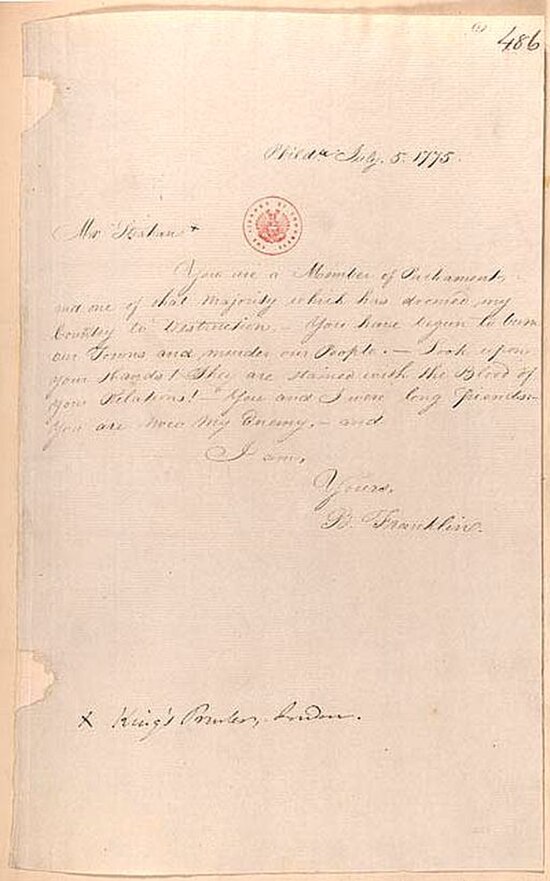 486
Philda July. 5. 1775.
Mr Strahan +
THE LIBRARY OF CONGRESS
You are a Member of Parliament,
and one of that Majority which has doomed my
Country to Destruction. — You have begun to burn
our Towns and murder our People. — Look upon
your Hands! They are stained with the Blood of
your Relations! — You and I were long Friends.—
You are Now My Enemy, — and
I am,
Yours,
B. Franklin.
x King's Printer, London.